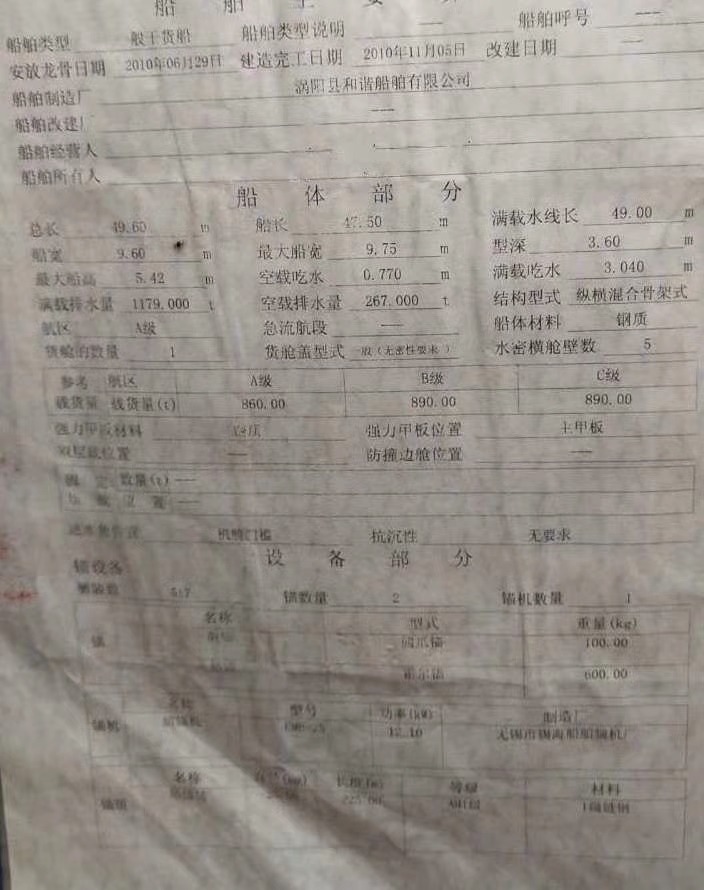 船 舶 主 要
船舶类型 一般干货船 船舶类型说明 —— 船舶呼号 ———
安放龙骨日期 2010年06月29日 建造完工日期 2010年11月05日 改建日期 ——
船舶制造厂 涡阳县和谐船舶有限公司
船舶改建厂 ———
船舶经营人
船舶所有人
船 体 部 分
总长 49.60 m 船长 47.50 m 满载水线长 49.00 m
船宽 9.60 m 最大船宽 9.75 m 型深 3.60 m
最大船高 5.42 m 空载吃水 0.770 m 满载吃水 3.040 m
满载排水量 1179.000 t 空载排水量 267.000 t 结构型式 纵横混合骨架式
航区 A级 急流航段 —— 船体材料 钢质
货舱的数量 1 货舱盖型式 一般(无密性要求) 水密横舱壁数 5
参考 航区 A级 B级 C级
载货量 载货量(t) 860.00 890.00 890.00
强力甲板材料 强力甲板位置 主甲板
双层底位置 —— 防撞边舱位置 ——
固 定 数量(t) ——
位 置 ——
机舱门槛 抗沉性 无要求
设 备 部 分
锚设备
舾装数 锚数量 2 锚机数量 1
名称 型式 重量(kg)
锚 四爪锚 100.00
霍尔锚 600.00
名称 型号 功率(kW) 制造厂
锚机 12.10 无锡市锡海船舶锚机厂
名称 直径(mm) 长度(m) 等级 材料
锚链